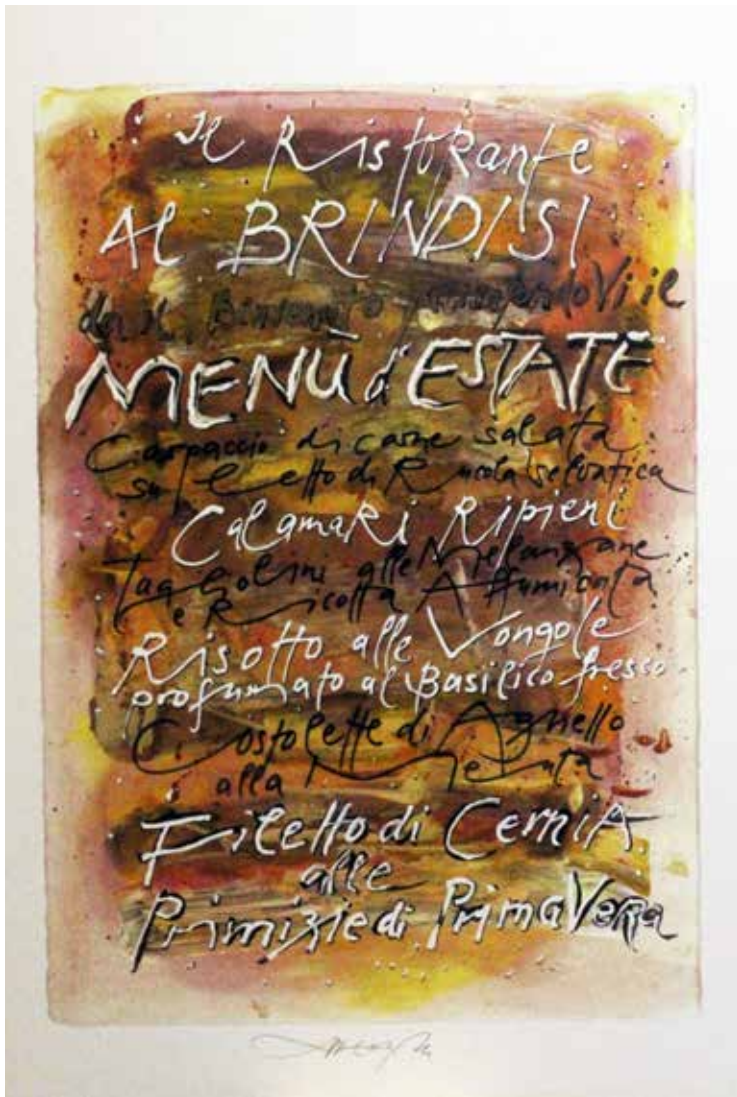 Il Ristorante
Al BRINDISI
dà il Benvenuto Vi il
MENÙ d'ESTATE
Carpaccio di carne salata
su letto di Rucola selvatica
Calamari Ripieni
Tagliolini alle Melanzane
e Ricotta Affumicata
Risotto alle Vongole
profumato al Basilico fresco
Costolette di Agnello
alla Menta
Filetto di Cernia
alle
Primizie di PrimaVera